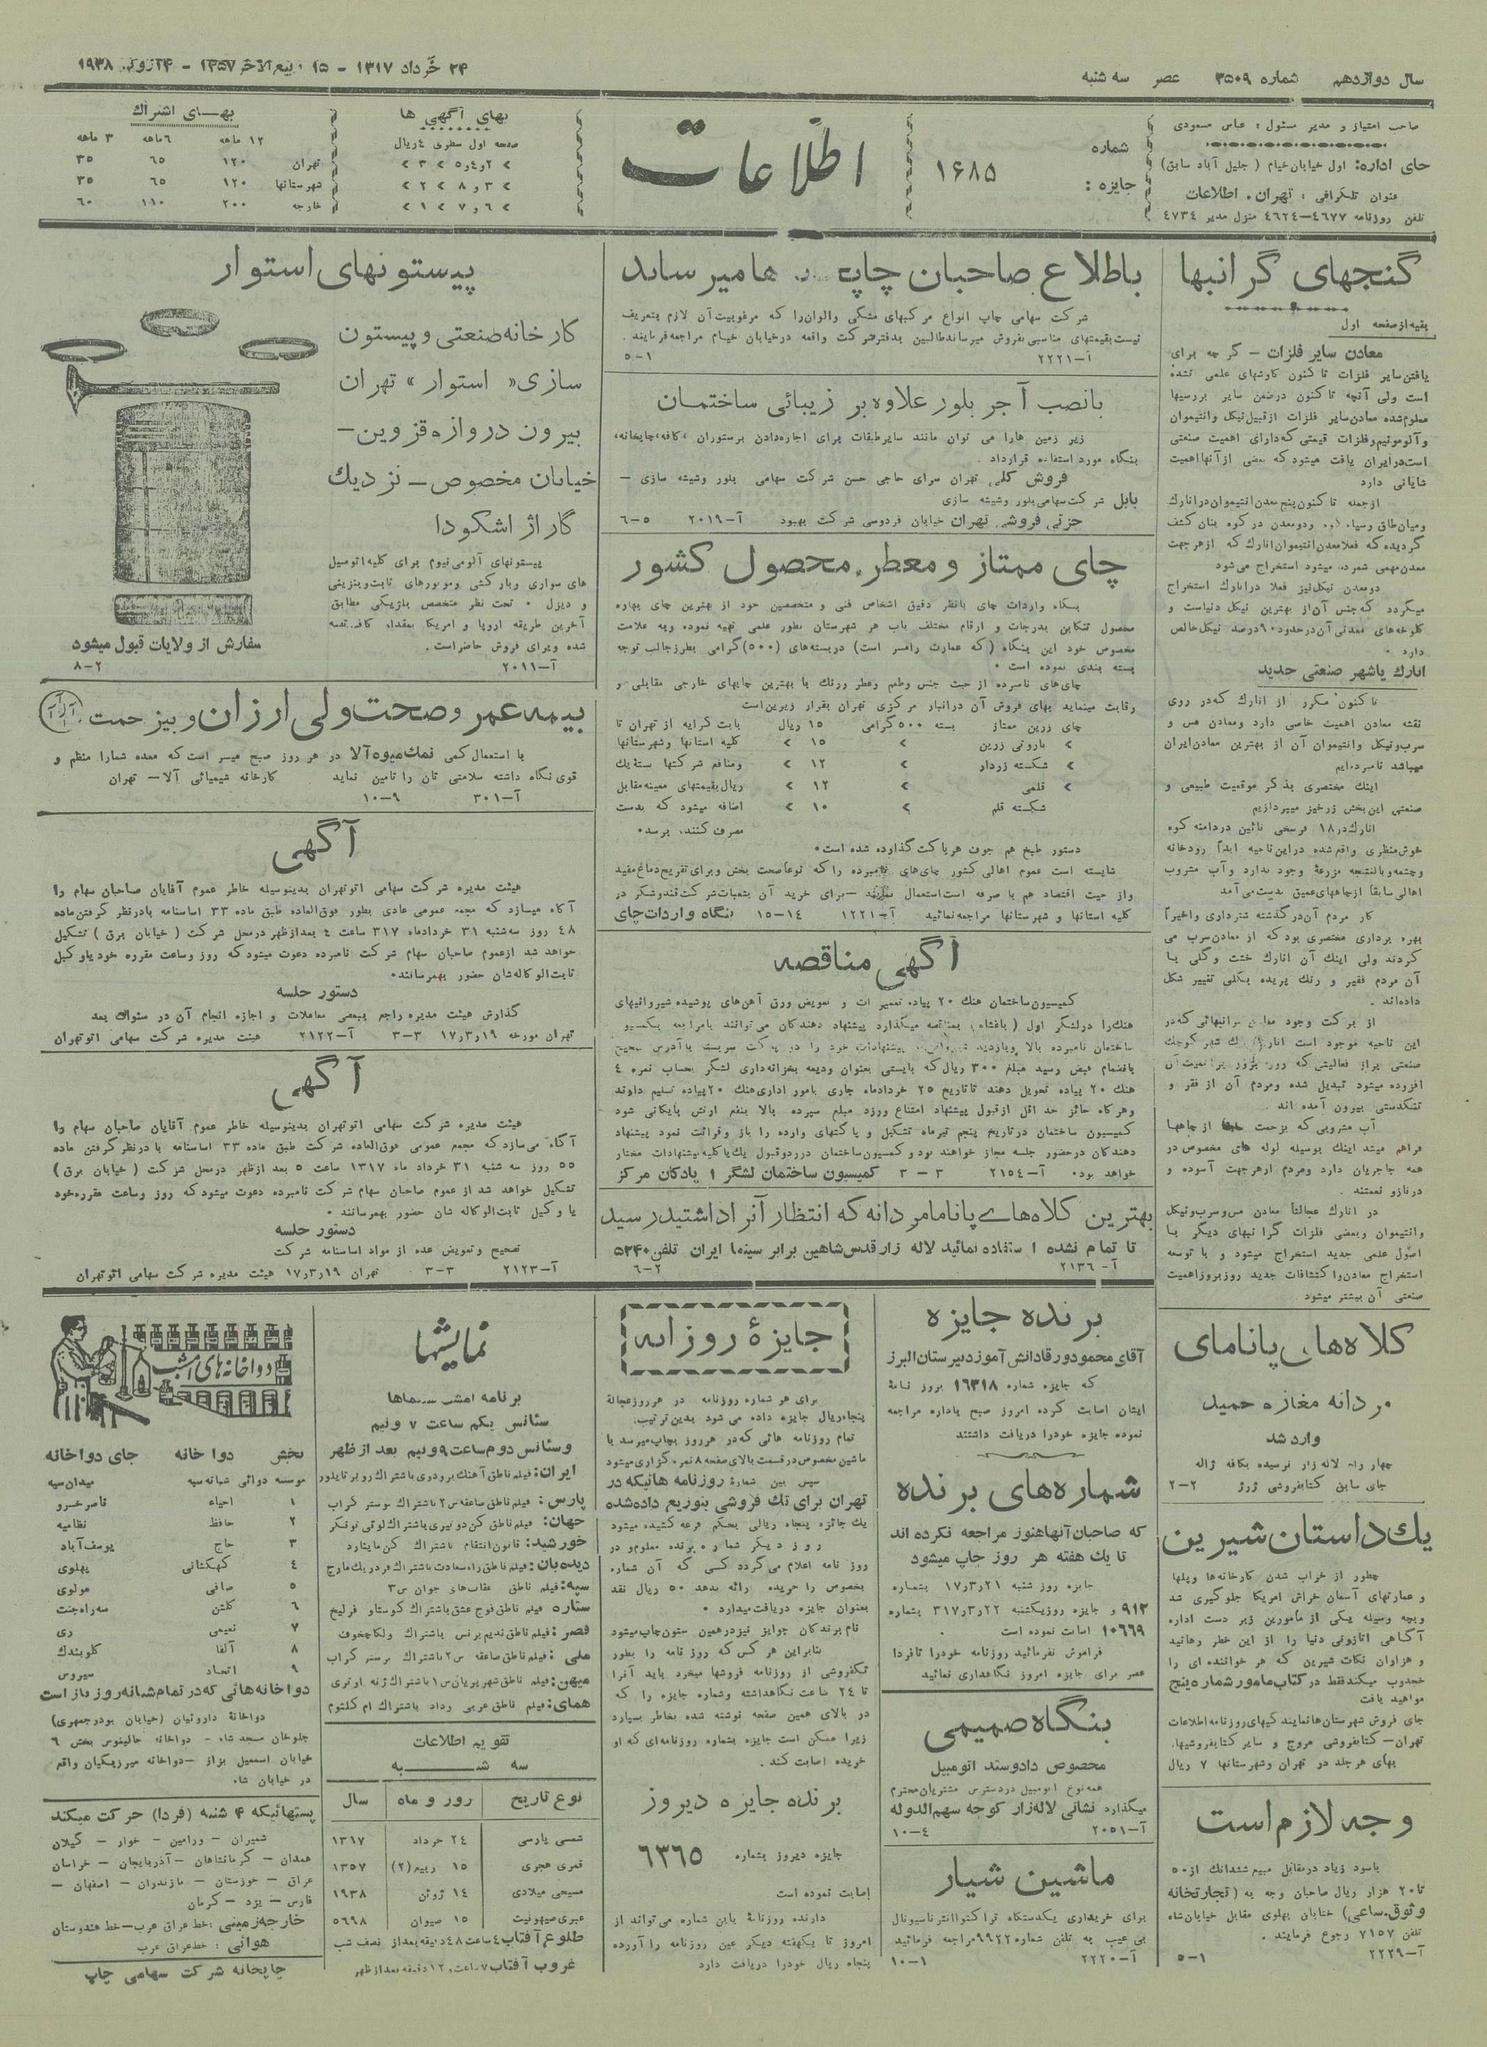 سال دوازدهم شماره ۳۵۰۹ عصر سه شنبه
۲۴ خرداد ۱۳۱۷ - ۱۵ ربیع الاخر ۱۳۵۷ - ۱۴ ژوئن ۱۹۳۸
صاحب امتیاز و مدیر مسئول : عباس مسعودی
جای اداره: اول خیابان خیام ( جلیل آباد سابق)
عنوان تلگرافی : تهران . اطلاعات
تلفن روزنامه ۴۶۷۷—۴۶۲۴ منزل مدیر ۴۷۳۴
شماره
جایزه :
۱۶۸۵
اطلاعات
بهای آگهی ها
صفحه اول سطری ۴ ریال
> ۲و۴و۵ > ۳ >
> ۳ و ۸ > ۲ >
> ۶ و ۷ > ۱ >
بهـــای اشتراك
۱۲ ماهه ۶ماهه ۳ ماهه
تهران ۱۲۰ ۶۵ ۳۵
شهرستانها ۱۲۰ ۶۵ ۳۵
خارجه ۲۰۰ ۱۱۰ ۶۰
گنجهای گرانبها
بقیه از صفحه اول
معادن سایر فلزات - گرچه برای
یافتن سایر فلزات تا کنون کاوشهای علمی نشده
است ولی آنچه تا کنون درضمن سایر بررسیها
معلوم شده معادن سایر فلزات از قبیل نیکل وانتیموان
و آلومونیم وفلزات قیمتی که دارای اهمیت صنعتی
است در ایران یافت میشود که بعضی از آنها اهمیت
شایانی دارد
ازجمله تا کنون پنج معدن انتیموان در انارك
گردیده که فعلا معدن انتیموان انارك که از هر جهت
معدن مهمی شمرده میشود استخراج می شود
دو معدن نیکل نیز فعلا در انارك استخراج
میگردد که جنس آن از بهترین نیکل دنیاست و
کلوخه های معدنی آن در حدود ۹۰ درصد نیکل خالص
دارد .
انارك یا شهر صنعتی جدید
تا کنون مکرر از انارك که در روی
نقشه معادن اهمیت خاصی دارد ومعادن مس و
سرب ونیکل وانتیموان آن از بهترین معادن ایران
میباشد نامبرده ایم
اینك مختصری بذکر موقعیت طبیعی و
صنعتی این بخش زرخیز میپردازیم
انارك در ۱۸ فرسخی نائین در دامنه کوه
خوش منظری واقع شده در این ناحیه ابدا رودخانه
وچشمه وبالنتیجه مزرعهٔ وجود ندارد وآب مشروب
اهالی سابقاً از چاههای عمیق بدست می آمد
کار مردم آن در گذشته شترداری واخیراً
بهره برداری مختصری بود که از معادن سرب می
کردند ولی اینك آن انارك خشت وگلی با
آن مردم فقیر و رنك پریده بکلی تغییر شکل
داده اند .
از برکت وجود معادن گرانبهائی که در
این ناحیه موجود است
افزوده میشود تبدیل شده ومردم آن از فقر و
تنگدستی بیرون آمده اند .
آب مشروبی که بزحمت سابقا از چاهها
فراهم میشد اینك بوسیله لوله های مخصوص در
همه جا جریان دارد ومردم از هر جهت آسوده و
در ناز و نعمتند .
در انارك عجالتاً معادن مس وسرب ونیکل
وانتیموان وبعضی فلزات گرانبهای دیگر با
اصول علمی جدید استخراج میشود و با توسعه
استخراج معادن واکتشافات جدید روز بروز اهمیت
صنعتی آن بیشتر میشود.
کلاه های پانامای
مردانه مغازه حمید
وارد شد
چهار راه لاله زار نرسیده بکافه ژاله
جای سابق کتابفروشی ژرژ ۲-۲
یك داستان شیرین
چطور از خراب شدن کارخانه ها وپلها
و عمارتهای آسمان خراش امریکا جلوگیری شد
وبچه وسیله یکی از مأمورین زبر دست اداره
آگاهی اتازونی دنیا را از این خطر رهانید
و هزاران نکات شیرین که هر خواننده ای را
مجذوب میکند فقط در کتاب مامور شماره پنج
خواهید یافت
جای فروش شهرستان ها نمایندگیهای روزنامه اطلاعات
تهران— کتابفروشی مروج و سایر کتابفروشیها.
بهای هر جلد در تهران وشهرستانها ۷ ریال
وجه لازم است
باسود زیاد در مقابل مبیع ششدانك از ۵۰
تا ۲۰ هزار ریال صاحبان وجه به (تجارتخانه
وثوق ساعی) خیابان پهلوی مقابل خیابان شاه
تلفن ۷۱۵۷ رجوع فرمایند .
آ-۲۲۲۹ ۱-۵
باطلاع صاحبان چاپخانه ها میرساند
شرکت سهامی چاپ انواع مرکبهای مشکی والوان را که مرغوبیت آن لازم بتعریف
نیست بقیمتهای مناسبی بفروش میرساند طالبین بدفتر شرکت واقعه در خیابان خیام مراجعه فرمایند .
آ-۲۲۲۱ ۱-۵
با نصب آجر بلور علاوه بر زیبائی ساختمان
زیر زمین ها را می توان مانند سایر طبقات برای اجاره دادن برستوران ،کافه،چاپخانه،
بنگاه مورد استفاده قرارداد .
فروش کلی تهران سرای حاجی حسن شرکت سهامی بلور وشیشه سازی —
بابل شرکت سهامی بلور وشیشه سازی
جزئی فروشی تهران خیابان فردوسی شرکت بهبود آ-۲۰۱۹ ۵-۶
چای ممتاز و معطر. محصول کشور
بنگاه واردات چای بانظر دقیق اشخاص فنی و متخصصین خود از بهترین چای بهاره
محصول تنکابن بدرجات و ارقام مختلف باب هر شهرستان بطور علمی تهیه نموده وبه علامت
مخصوص خود این بنگاه (که عمارت رامسر است) در بسته های (۵۰۰) گرامی بطرز جالب توجه
بسته بندی نموده است .
چای های نامبرده از حیث جنس وطعم وعطر ورنك با بهترین چایهای خارجی مقابلی و
رقابت مینماید بهای فروش آن در انبار مرکزی تهران بقرار زیرین است
چای زرین ممتاز بسته ۵۰۰ گرامی ۱۵ ریال بابت کرایه از تهران تا
> باروتی زرین > ۱۵ > کلیه استانها وشهرستانها
> شکسته زردار > ۱۲ > ومنافع شرکتها ستة یك
> قلمی > ۱۲ > ریال بقیمتهای معینه مقابل
شکسته قلم > ۱۰ > اضافه میشود که بدست
مصرف کننده برسد.
دستور طبخ هم جوف هر پاکت گذاوده شده است.
شایسته است عموم اهالی کشور چای های نامبرده را که نوعاً صحت بخش وبرای تفریح دماغ مفید
واز حیث اقتصاد هم با صرفه است استعمال نمایند —برای خرید آن بشعبات شرکت قندوشکر در
کلیه استانها و شهرستانها مراجعه نمائید آ-۱۲۲۱ ۱۴-۱۵ بنگاه واردات چای
آگهی مناقصه
کمیسیون ساختمان هنك ۲۰ پیاده تعمیرات و تعویض ورق آهن های پوشیده شیروانیهای
هنك را در لشگر اول ( باغشاه) بمناقصه میگذارد پیشنهاد دهندگان می توانند بامراجعه بکمسیون
بانضمام قبض رسید مبلغ ۳۰۰ ریال که بایستی بعنوان ودیعه بخزانه داری لشگر بحساب نمره ۴
هنك ۲۰ پیاده تحویل دهند تا تاریخ ۲۵ خرداد ماه جاری بامور اداری هنك ۲۰ پیاده تسلیم دارند
وهرگاه حائز حد اقل از قبول پیشنهاد امتناع ورزد مبلغ سپرده بالا بنفع ارتش بایگانی شود
کمیسیون ساختمان در تاریخ پنجم تیرماه تشکیل و پاکتهای وارده را باز وقرائت نمود پیشنهاد
دهندگان در حضور جلسه مجاز خواهند بود و کمسیون ساختمان در ردوقبول یك یا کلیه پیشنهادات مختار
خواهد بود. آ-۲۱۵۴ ۳-۳ کمیسیون ساختمان لشگر ۱ پادگان مرکز
بهترین کلاه های پاناما مردانه که انتظار آنرا داشتید رسید
تا تمام نشده استفاده نمائید لاله زار قدس شاهین برابر سینما ایران تلفن ۵۲۴۰
آ- ۲۱۳۶ ۲-۶
پیستونهای استوار
کارخانه صنعتی و پیستون
سازی « استوار » تهران
بیرون دروازه قزوین—
خیابان مخصوص— نزدیك
گاراژ اشکودا
پیستونهای آلومی نیوم برای کلیه اتومبیل
های سواری وبارکشی وموتورهای ثابت وبنزینی
و دیزل . تحت نظر متخصص بلژیکی مطابق
آخرین طریقه اروپا و امریکا بمقدار کافی تهیه
شده وبرای فروش حاضر است.
آ-۲۰۱۱
سفارش از ولایات قبول میشود
۲-۸
بیمه عمر و صحت ولی ارزان و بیزحمت
با استعمال کمی نمك میوه آلا در هر روز صبح میسر است که معده شما را منظم و
قوی نگاه داشته سلامتی تان را تامین نماید کارخانه شیمیائی آلا— تهران
آ-۳۰۱ ۹-۱۰
آگهی
هیئت مدیره شرکت سهامی اتوتهران بدینوسیله خاطر عموم آقایان صاحبان سهام را
آگاه میسازد که مجمع عمومی عادی بطور فوق العاده طبق ماده ۳۳ اساسنامه بادر نظر گرفتن ماده
۴۸ روز سه شنبه ۳۱ خرداد ماه ۳۱۷ ساعت ۴ بعد از ظهر در محل شرکت ( خیابان برق ) تشکیل
خواهد شد از عموم صاحبان سهام شرکت نامبرده دعوت میشود که روز وساعت مقرره خود یا وکیل
ثابت الوکاله شان حضور بهمرسانند.
دستور جلسه
گذارش هیئت مدیره راجع ببعضی معاملات و اجازه انجام آن در سنوات بعد
تهران مورخه ۱۷٫۳٫۱۹ ۳-۳ آ-۲۱۲۲ هیئت مدیره شرکت سهامی اتوتهران
آگهی
هیئت مدیره شرکت سهامی اتوتهران بدینوسیله خاطر عموم آقایان صاحبان سهام را
آگاه می سازد که مجمع عمومی فوق العاده شرکت طبق ماده ۳۳ اساسنامه با در نظر گرفتن ماده
۵۵ روز سه شنبه ۳۱ خرداد ماه ۱۳۱۷ ساعت ۵ بعد از ظهر در محل شرکت ( خیابان برق )
تشکیل خواهد شد از عموم صاحبان سهام شرکت نامبرده دعوت میشود که روز وساعت مقرره خود
یا وکیل ثابت الوکاله شان حضور بهمرسانند .
دستور جلسه
تصحیح وتعویض عده از مواد اساسنامه شرکت
آ-۲۱۲۳ ۳-۳ تهران ۱۷٫۳٫۱۹ هیئت مدیره شرکت سهامی اتوتهران
برنده جایزه
آقای محمود ورقا دانش آموز دبیرستان البرز
که جایزه شماره ۱۶۳۱۸ بروز نامهٔ
ایشان اصابت کرده امروز صبح باداره مراجعه
نموده جایزه خود را دریافت داشتند
شماره های برنده
که صاحبان آنها هنوز مراجعه نکرده اند
تا یك هفته هر روز چاپ میشود
جایزه روز شنبه ۱۷٫۳٫۲۱ بشماره
۹۱۲ و جایزه روز یکشنبه ۳۱۷٫۳٫۲۲ بشماره
۱۰۶۶۹ اصابت نموده است .
فراموش نفرمائید روزنامه خود را تا فردا
عصر برای جایزه امروز نگاهداری نمائید
بنگاه صمیمی
مخصوص داد وستد اتومبیل
همه نوع اتومبیل در دسترس مشتریان محترم
میگذارد نشانی لاله زار کوچه سهم الدوله
آ-۲۰۵۱ ۴-۱۰
ماشین شیار
برای خریداری یکدستگاه تراکتوا انترناسیونال
بی عیب به تلفن شماره ۹۹۲۲ مراجعه فرمائید
آ-۲۲۲۰ ۱-۱۰
جایزهٔ روزانه
برای هر شماره روزنامه در هر روز عجالة
پنجاه ریال جایزه داده می شود بدین ترتیب:
تمام روزنامه هائی که در هر روز بچاپ میرسد با
ماشین مخصوص در قسمت بالای صفحه ۸ نمره گزاری میشود
سپس بین شمارهٔ روزنامه هائیکه در
تهران برای تك فروشی بتوزیع داده شده
یك جائزه پنجاه ریالی بحکم قرعه کشیده میشود
روز دیگر شماره برنده معلوم و در
روز نامه اعلام می گردد کسی که آن شماره
بخصوص را خریده ارائه بدهد ۵۰ ریال نقد
بعنوان جایزه دریافت میدارد .
نام برندگان جوایز نیز در همین ستون چاپ میشود
بنابراین هر کس که روز نامه را بطور
تکفروشی از روزنامه فروشها میخرد باید آنرا
تا ۲۴ ساعت نگاهداشته وشماره جایزه را که
در بالای همین صفحه نوشته شده بخاطر بسپارد
زیرا ممکن است جایزه بشماره روزنامه ای که او
خریده اصابت کند .
برنده جایزه دیروز
جایزه دیروز بشماره ۶۳۶۵
اصابت نموده است
دارنده روزنامهٔ باین شماره می تواند از
امروز تا یکهفته دیگر عین روزنامه را آورده
پنجاه ریال خود را دریافت دارد
نمایشها
برنامه امشب سینماها
سئانس یکم ساعت ۷ ونیم
وسئانس دوم ساعت ۹ ونیم بعد از ظهر
ایران: فیلم ناطق آهنك برودری باشتراك روبر تایلور
پارس: فیلم ناطق صاعقه س۲ باشتراك بوستر کراب
جهان: فیلم ناطق کن دونبری باشتراك لوئی تونکر
خورشید: قانون انتقام باشتراك کن ماینارد
دیده بان: فیلم ناطق راه سعادت باشتراك فردریك مارچ
سپه: فیلم ناطق عقاب های جوان س۳
ستاره فیلم ناطق فوج عشق باشتراك گوستاو فرلیخ
قصر: فیلم ناطق ندیم پرنس باشتراك ولکاچخوف
ملی: فیلم ناطق صاعقه س۲ باشتراك برستر کراب
میهن: فیلم ناطق شهر پریان س۱ باشتراك ژنه اوتری
همای: فیلم ناطق عربی وداد باشتراك ام کلثوم
تقویم اطلاعات
سه شـــــــنبه
نوع تاریخ روز و ماه سال
شمسی پارسی ۲۴ خرداد ۱۳۱۷
قمری هجری ۱۵ ربیع(۲) ۱۳۵۷
مسیحی میلادی ۱۴ ژوئن ۱۹۳۸
عبری صیهونیت ۱۵ صیوان ۵۶۹۸
طلوع آفتاب ۴ ساعت ۴۸ دقیقه بعد از نصف شب
غروب آفتاب ۷ ساعت و ۱۲ دقیقه بعد از ظهر
دواخانه های امشب
بخش دوا خانه جای دواخانه
موسسه دوائی شبانه سپه میدان سپه
۱ احیاء ناصر خسرو
۲ حافظ نظامیه
۳ حاج یوسف آباد
۴ کهکشانی پهلوی
۵ صافی مولوی
۶ گلشن سه راه جنت
۷ نعیمی ری
۸ آلفا گلوبندك
۹ اتحاد سیروس
دواخانه هائی که در تمام شبانه روز باز است
دواخانهٔ داروئیان (خیابان بوذرجمهری)
جلوخان مسجد شاه - دواخانه جالینوس بخش ۶
خیابان اسمعیل بزاز —دواخانه میرزیگیان واقع
در خیابان شاه
پستهائیکه ۴ شنبه (فردا) حرکت میکند
شمیران — ورامین — خوار — گیلان
همدان — کرمانشاهان —آذربایجان — خراسان
عراق — خوزستان — مازندران — اصفهان —
فارس — یزد — کرمان
خارجه زمینی : خط عراق عرب—خط هندوستان
هوائی : خط عراق عرب
چاپخانه شرکت سهامی چاپ